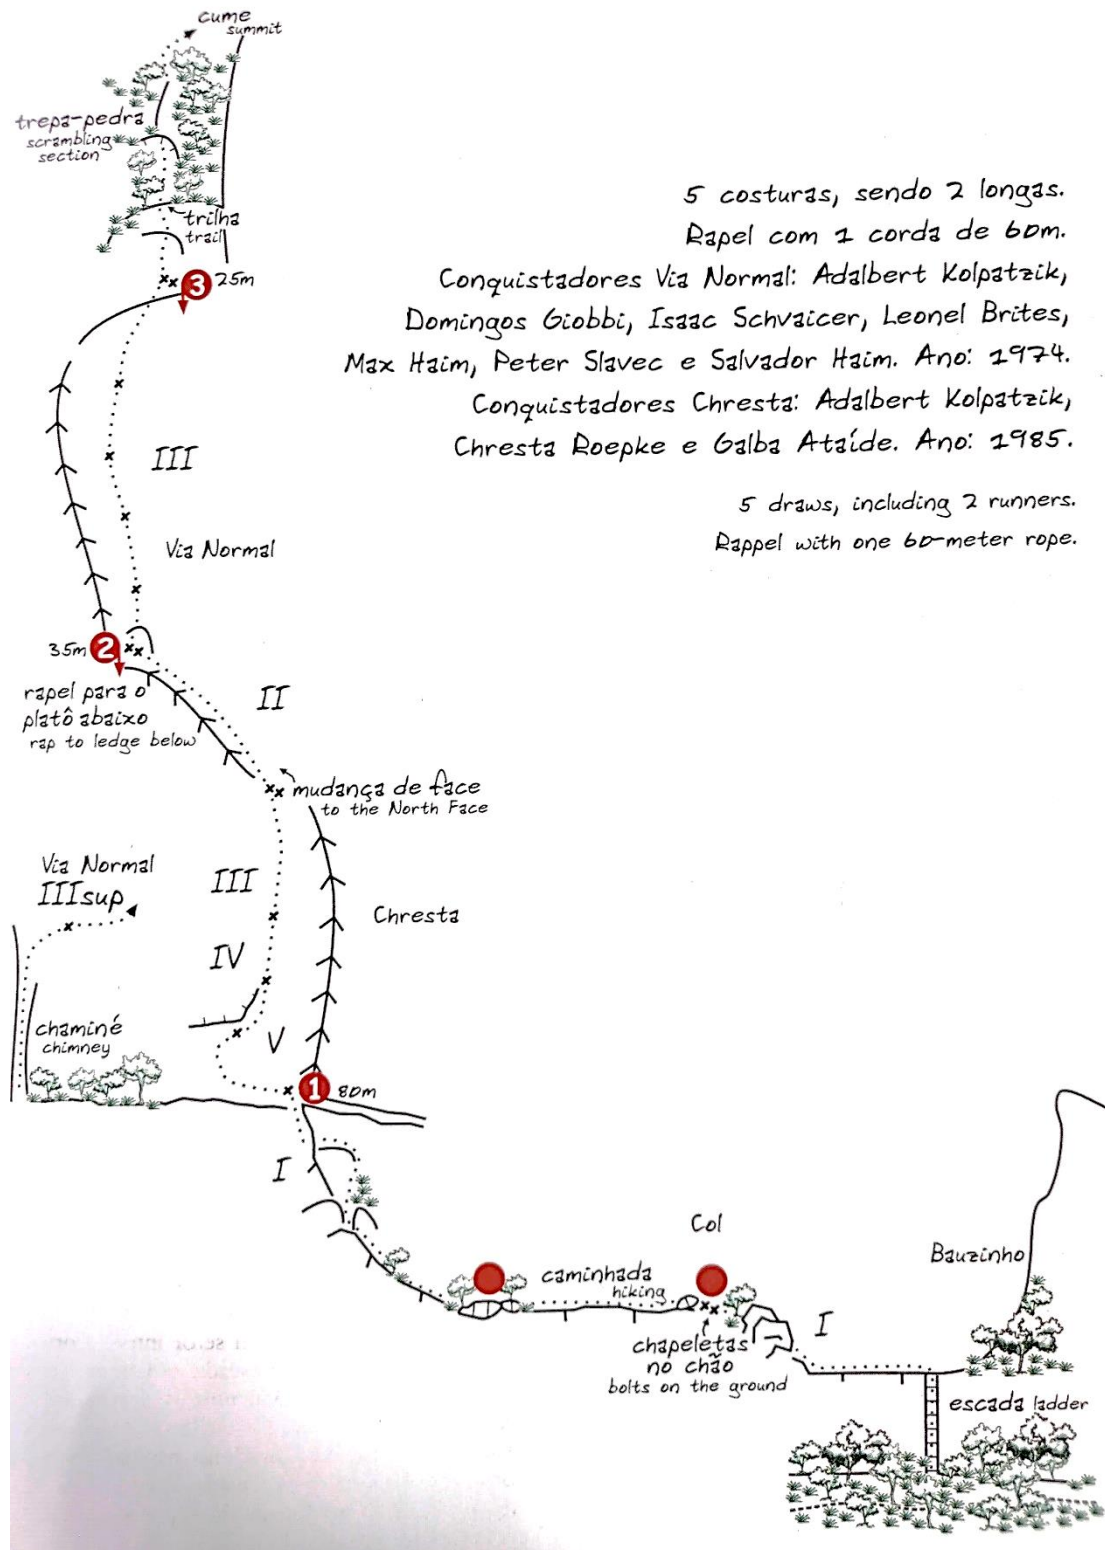 cume
summit
trepa-pedra
scrambling
section
trilha
trail
3 25m
5 costuras, sendo 2 longas.
Rapel com 1 corda de 60m.
Conquistadores Via Normal: Adalbert Kolpatzik,
Domingos Giobbi, Isaac Schvaicer, Leonel Brites,
Max Haim, Peter Slavec e Salvador Haim. Ano: 1974.
Conquistadores Chresta: Adalbert Kolpatzik,
Chresta Roepke e Galba Ataíde. Ano: 1985.
5 draws, including 2 runners.
Rappel with one 60-meter rope.
III
Via Normal
35m 2
rapel para o
platô abaixo
rap to ledge below
II
mudança de face
to the North Face
Via Normal
IIIsup
III
Chresta
IV
chaminé
chimney
V
1 80m
I
Col
caminhada
hiking
Bauzinho
chapeletas
no chão
bolts on the ground
I
escada ladder